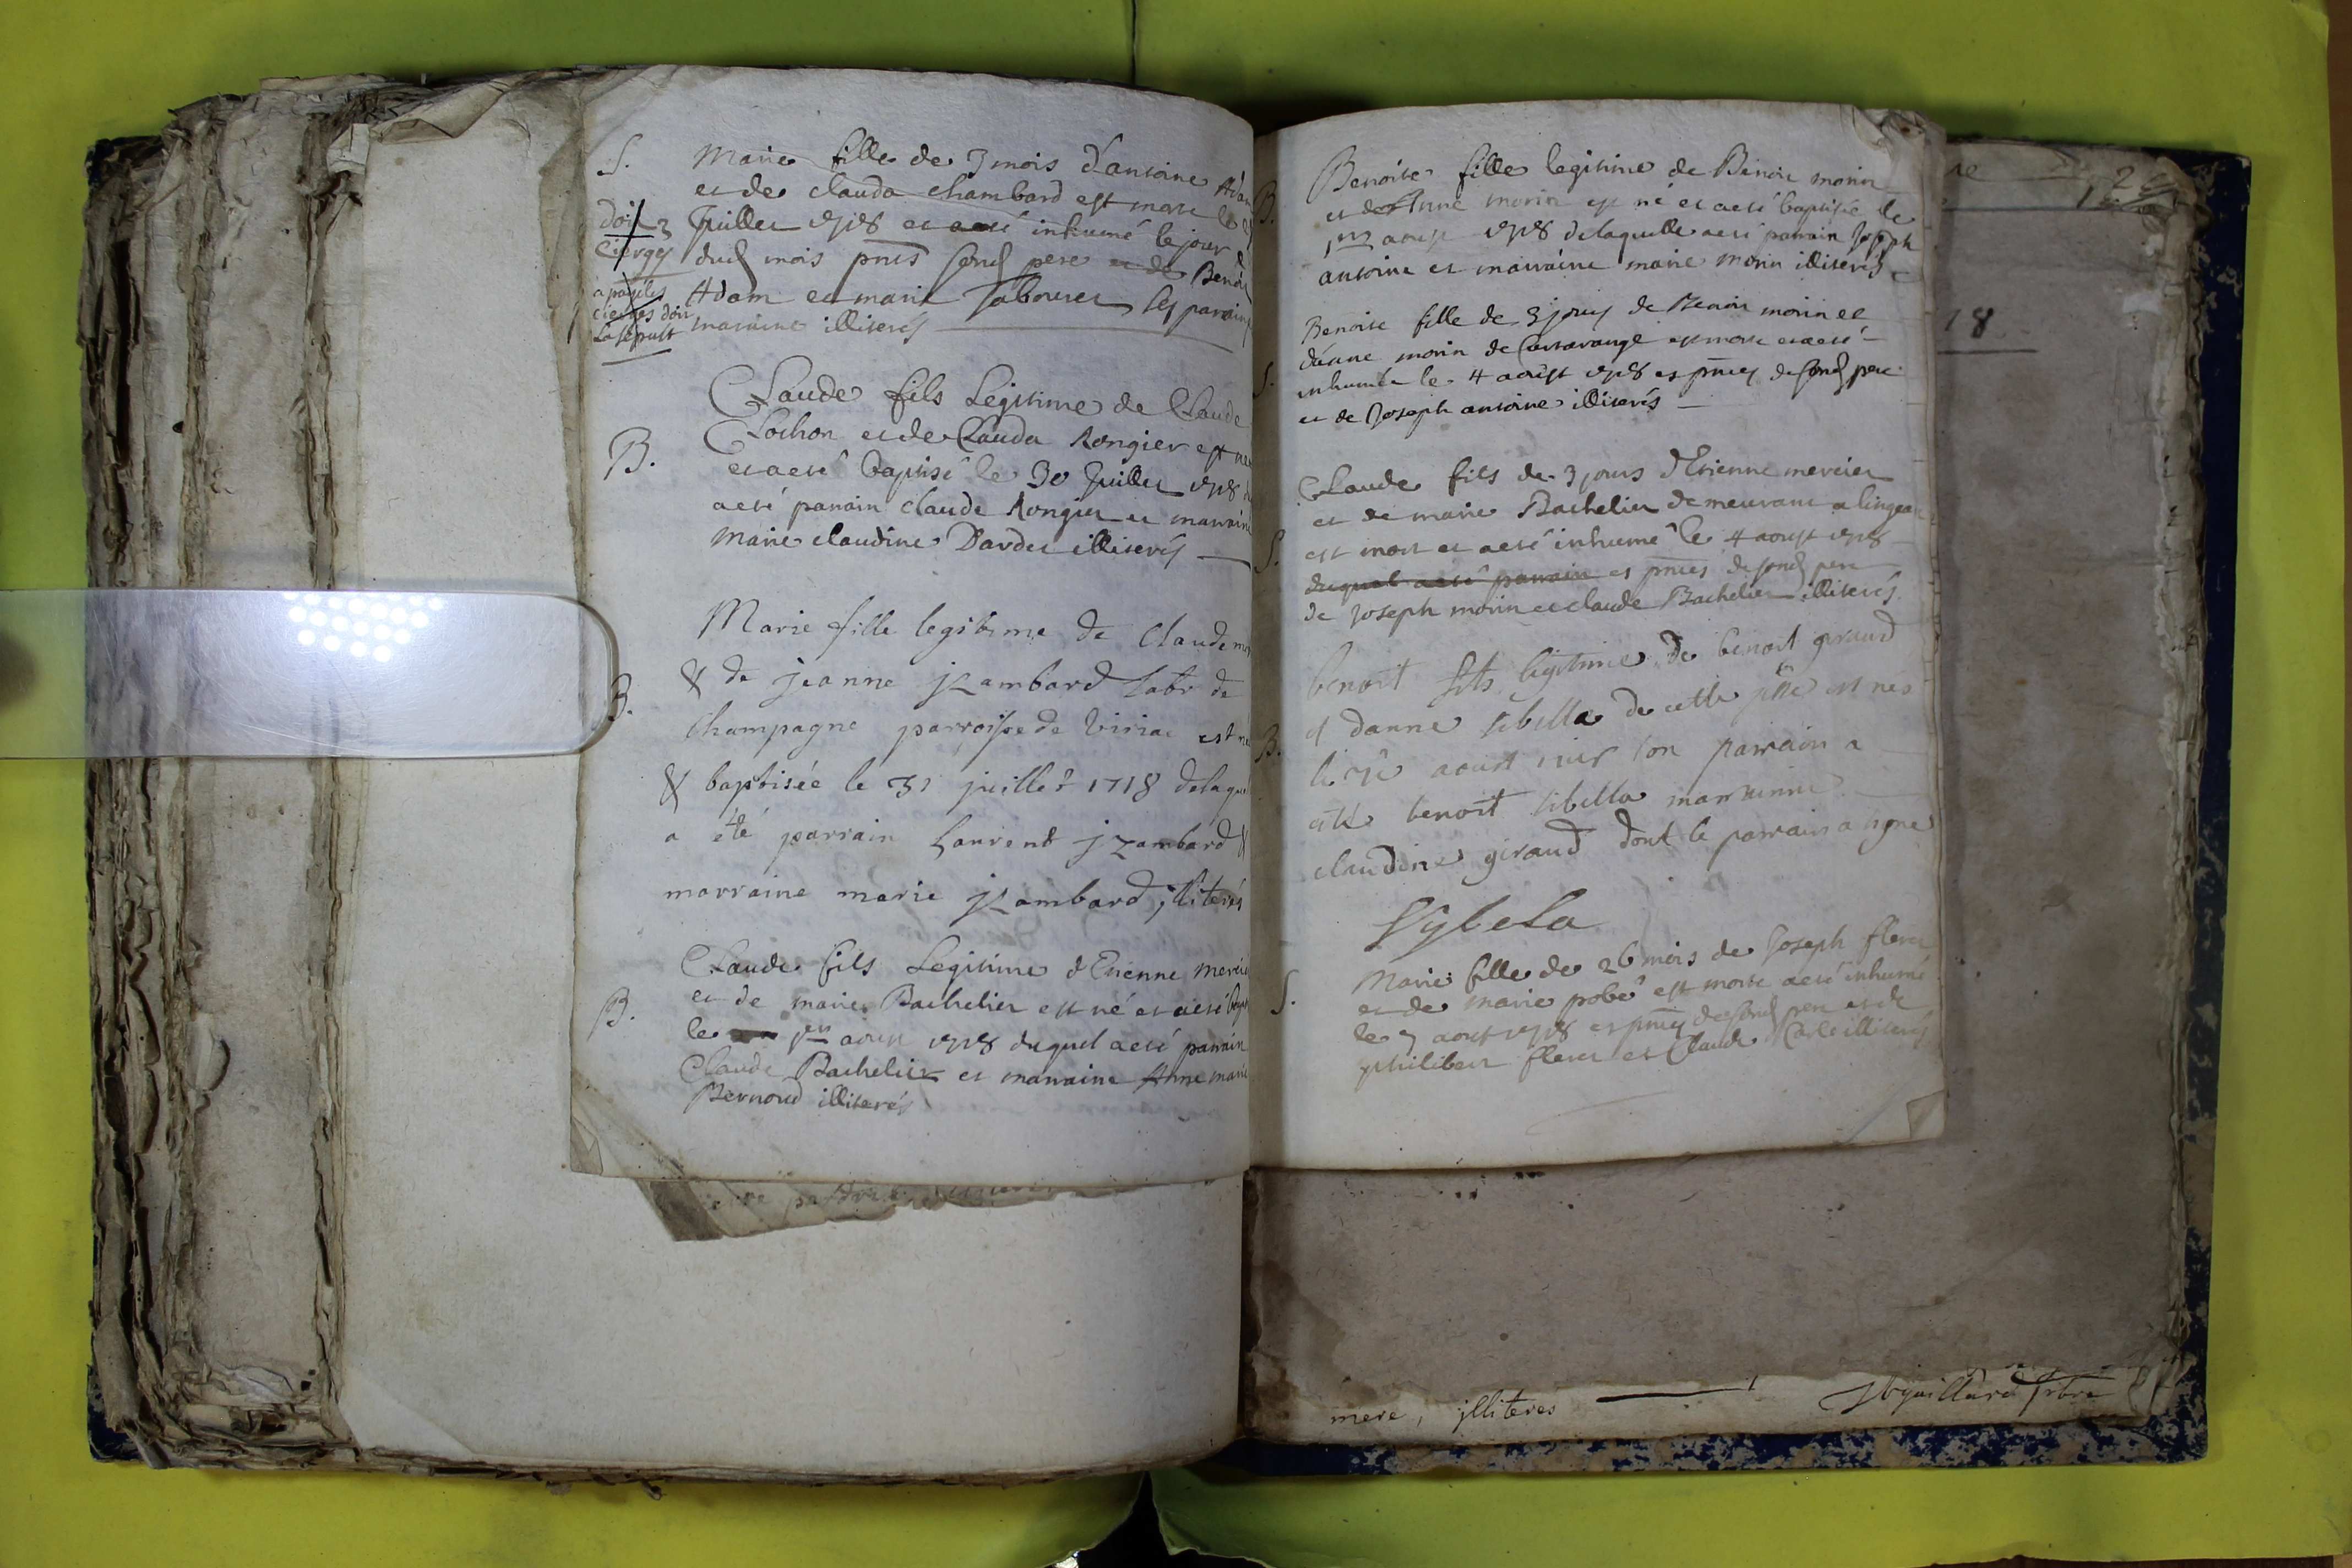 S. Marie fille de 3 mois d'antoine Adam
et de clauda chambard est morte le
Juillet 1718 et a eté inhumé le jour
dud mois pnts sond pere et de Benoit
Adam et marie Tabouret ses parain
maraine illiterés
doit 3
Cierges
a payé les
cierges doit
La sepult
Claude fils Legitime de Claude
B. Cochon et de Clauda Rongier est né
et a eté baptisé le 30 Juillet 1718
a eté parain claude Rongier et maraine
marie claudine Dardet illiterés
Marie fille legitime de Claude
B. & de jeanne jzambard labr de
Champagne parroisse de viriac est né
& baptisée le 31 juillet 1718 delaque
a été parrain Laurent jzambard &
marraine marie jzambard, jlliterés
Claude fils Legitime d'Etienne mercie
B. et de marie Bachelier est né et a eté bapt
le 1er aoust 1718 duquel a eté parain
Claude Bachelier et maraine Anne marie
Bernoud illiterés
B. Benoite fille legitime de Benoit morin
et de Anne morin est né et a eté baptisée le
1er aoust 1718 de laquelle a eté parain Joseph
antoine et maraine marie morin illiterés
Benoite fille de 3 jours de Benoit morin et
d'anne morin de est morte et a eté
S. inhumée le 4 aoust 1718 es pnces de sond pere
et de Joseph antoine illiterés
Claude fils de 3 jours d'Etienne mercier
et de marie Bachelier demeurant a lingeat
S. est mort et a eté inhumé le 4 aoust 1718
duquel a eté parrain es pnces de sond pere
de Joseph morin et claude Bachelier illiterés
benoit fils legitime de benoit giraud
et danne sibella de cette psse est nés
B. le aoust 1718 son parrain a
été benoit sibella marrainne
claudine giraud dont le parrain a signé
Sybela
S. Marie fille de 26 mois de Joseph fleret
et de marie probé est morte a eté inhumé
le 7 aoust 1718 es pnces de sond pere et de
philibert fleret et Claude Carle illiterés
ne 12
18
mere, jlliteres